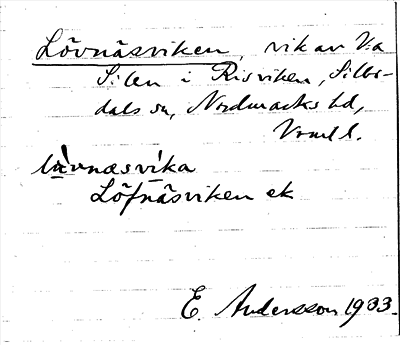 Lövnäsviken, vik av V:a
Silen i Risviken, Silbo-
dals sn, Nordmarks hd,
Vrml l.
lövnæsvika
Löfnäsviken ek
E. Andersson 1933.